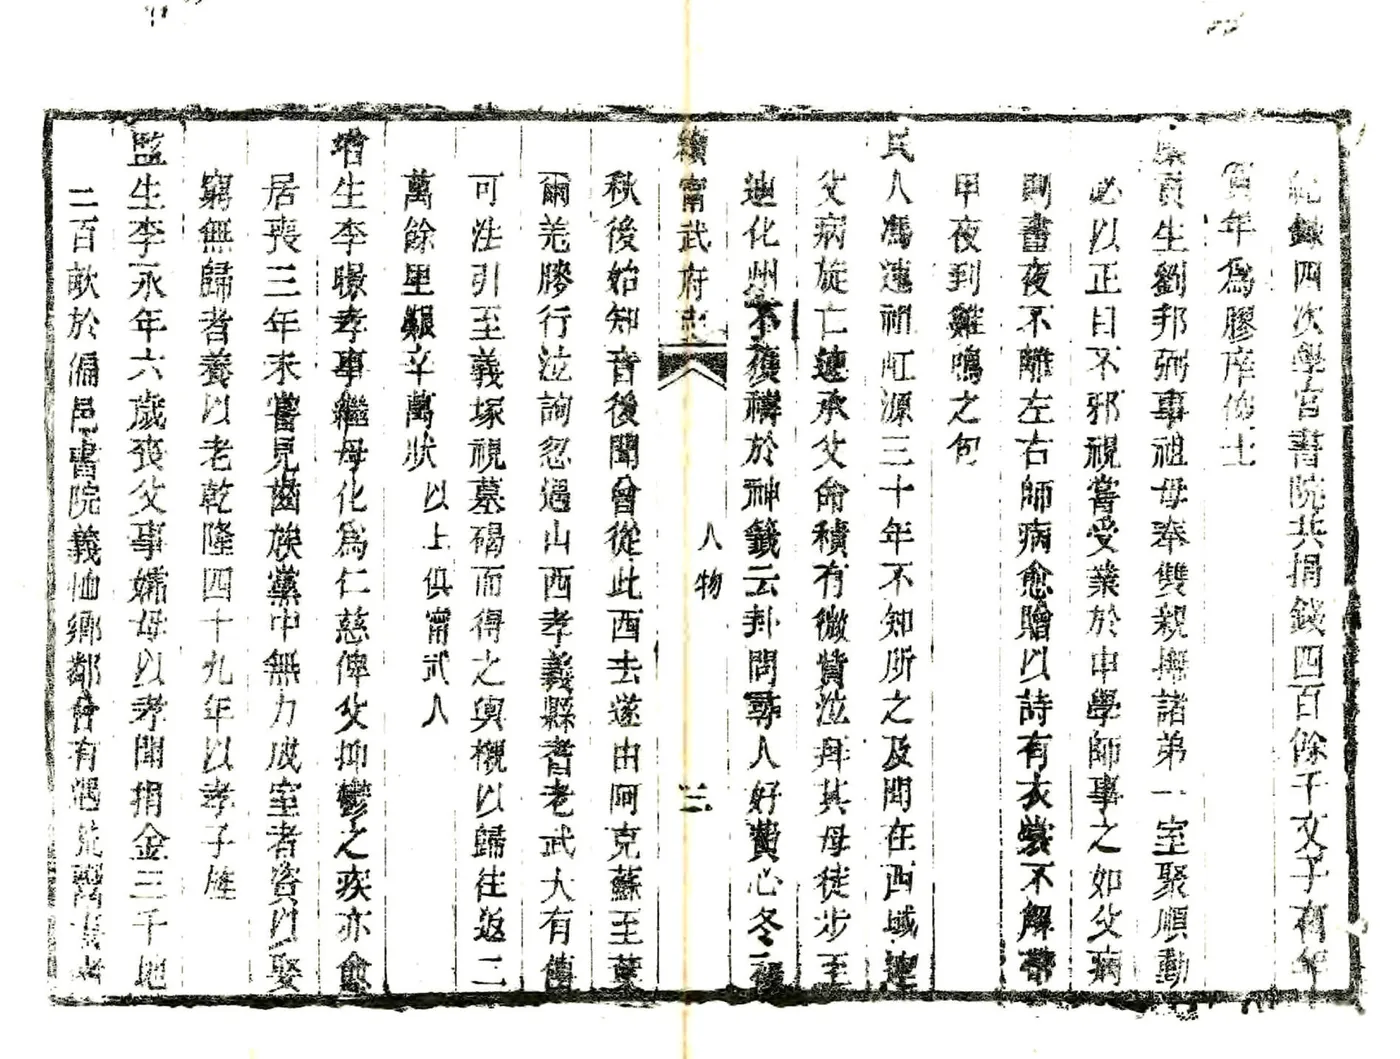 紀錄四次學宮書院共捐錢四百餘千文子有年
賀年爲膠庠佾士
貢生劉邦弼事祖母奉雙親撫諸弟一室聚順動
必以正目不邪視嘗受業於申學師事之如父病
則晝夜不離左右師病愈贈以詩有衣裳不解帶
甲夜到雞鳴之句
民人馮連祖虹源三十年不知所之及聞在西域連
父病旋亡連承父命積有微貲泣拜其母徒步至
迪化州不獲禱於神籤云卦問尋人好費心冬
秋後始知音後聞曾從此西去遂由阿克蘇至葉
爾羌滕行泣詢忽遇山西孝義縣耆老武大有傳
可法引至義塚視墓碣而得之輿櫬以歸往返二
萬餘里艱辛萬狀 以上俱甯武人
增生李暻孝事繼母化爲仁慈俾父抑鬱之疾亦愈
居喪三年未嘗見齒族黨中無力成室者資以娶
窮無歸者養以老乾隆四十九年以孝子旌
監生李永年六歲喪父事孀母以孝聞捐金三千地
二百畝於偏邑書院義恤鄉鄰會有遇荒
續甯武府志 人物 三